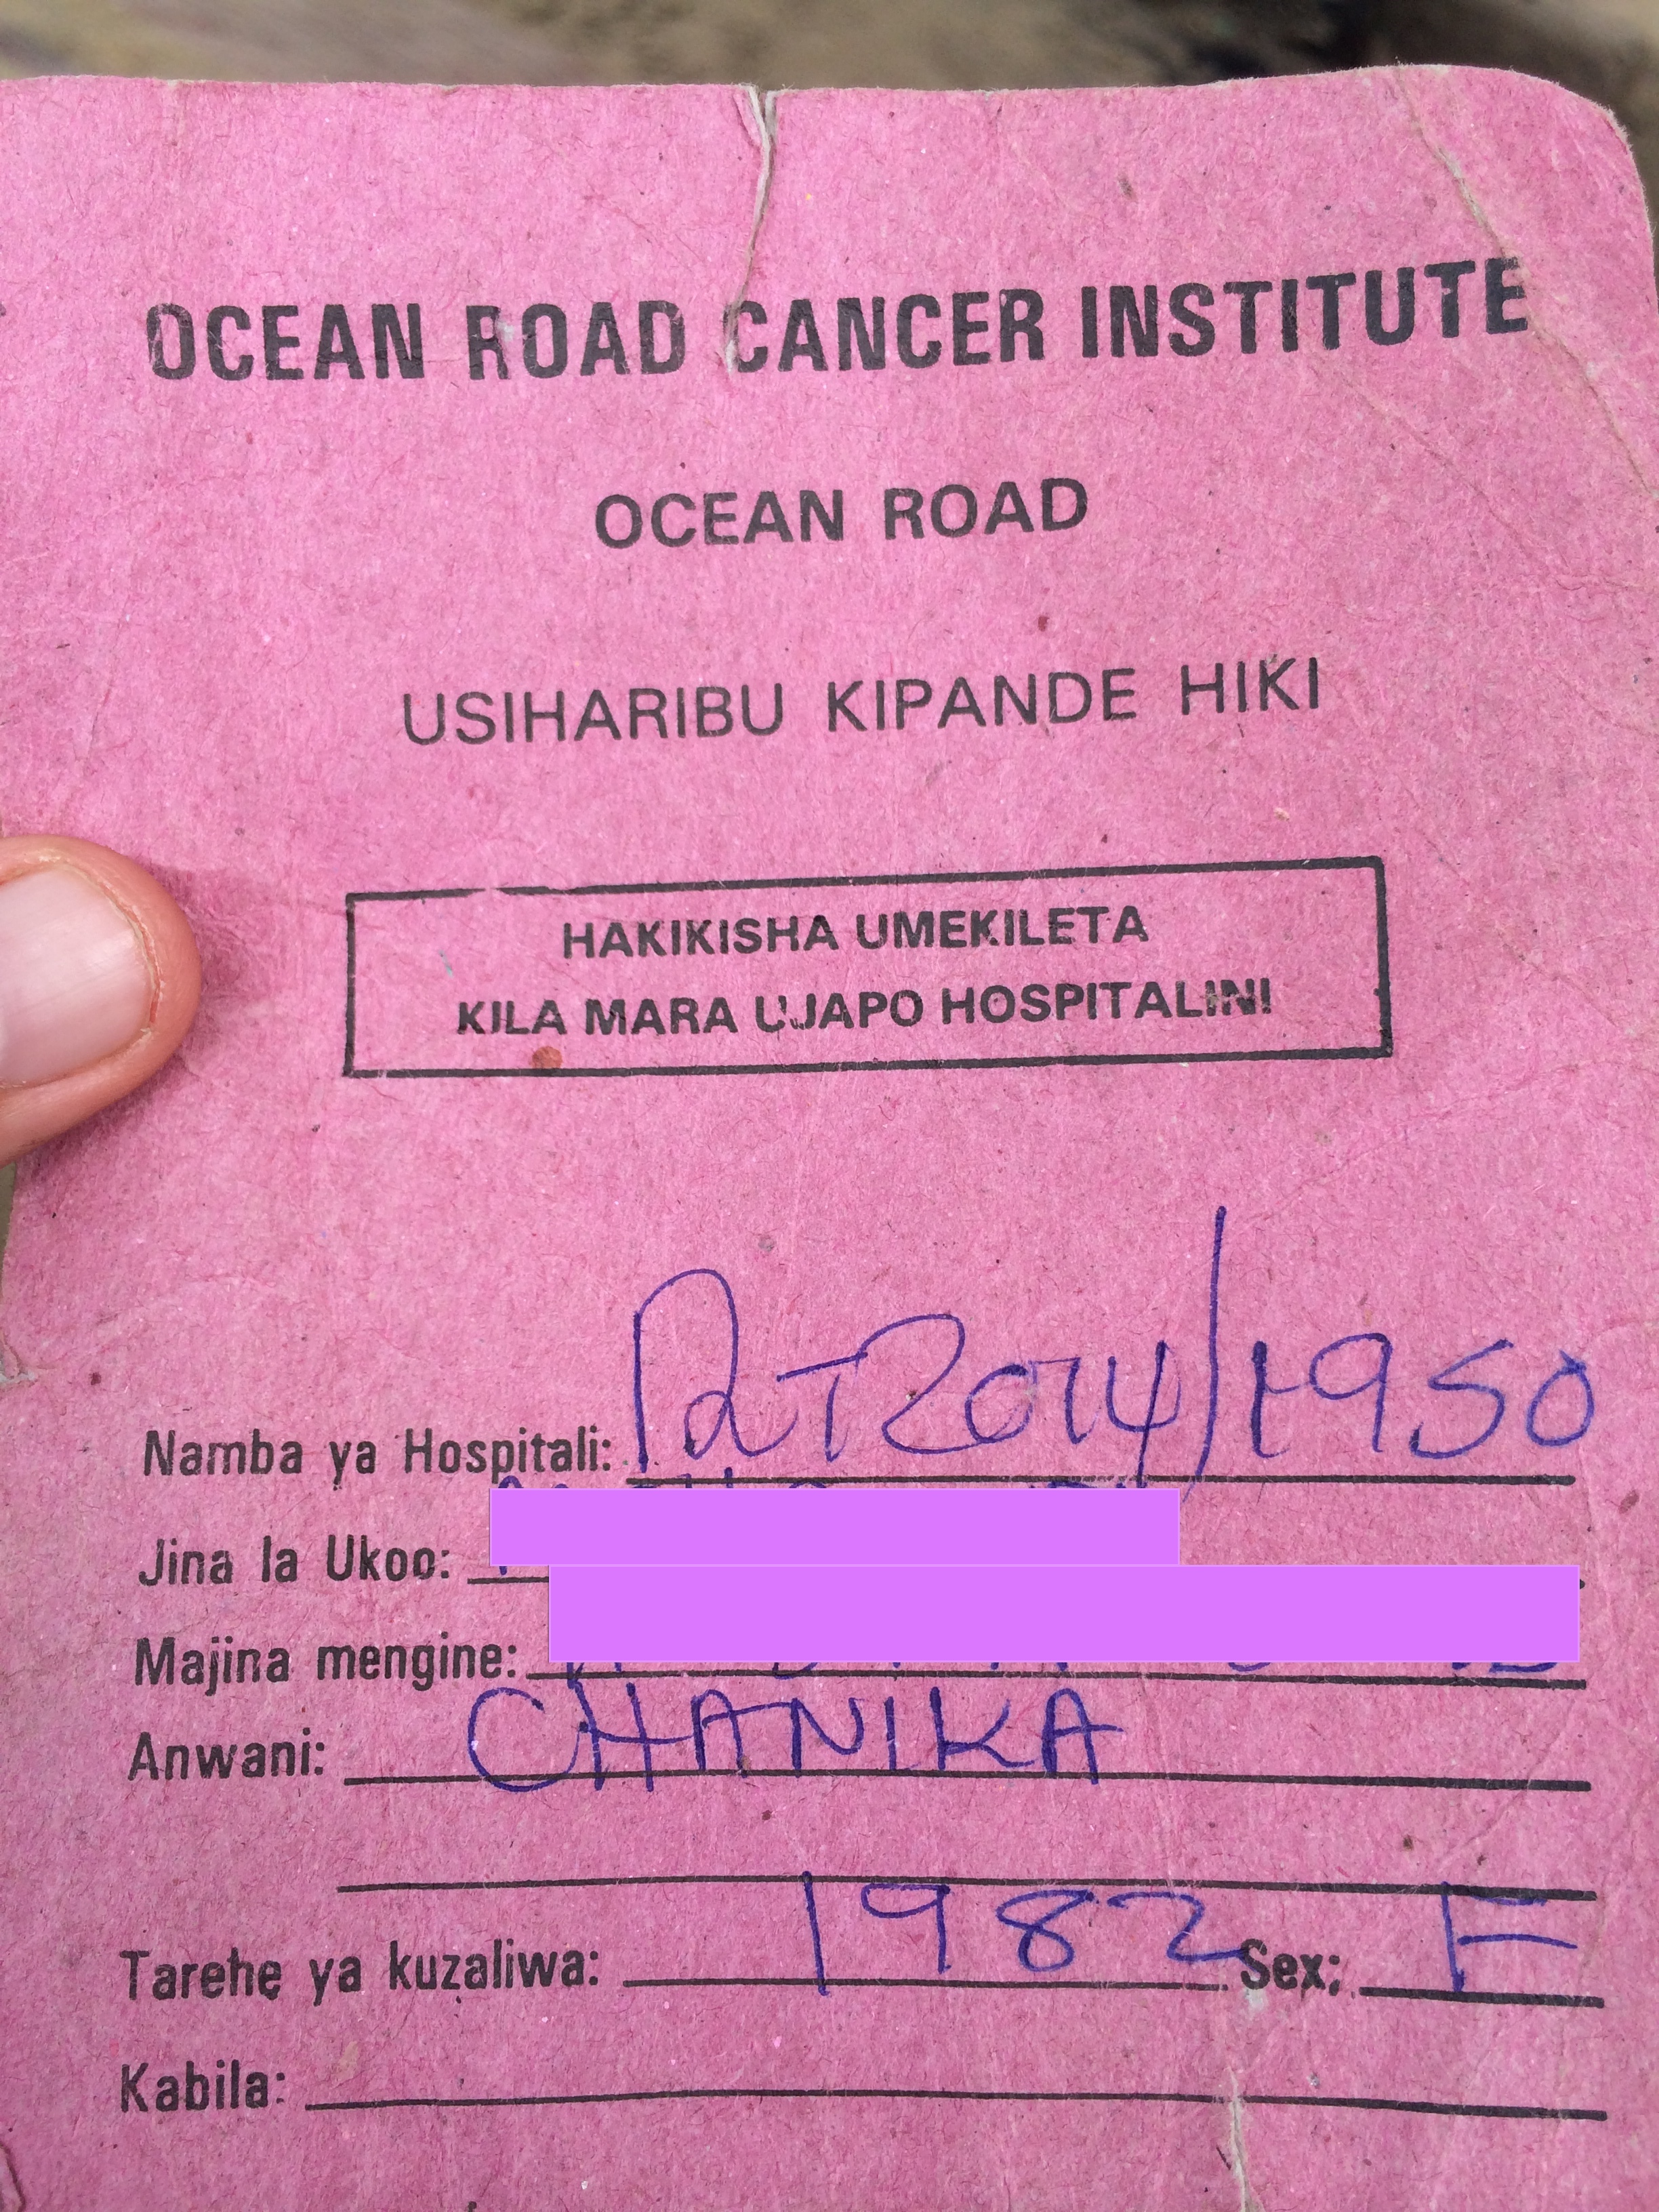 OCEAN ROAD CANCER INSTITUTE
OCEAN ROAD
USIHARIBU KIPANDE HIKI
HAKIKISHA UMEKILETA
KILA MARA UJAPO HOSPITALINI
Namba ya Hospitali: RT2014/1950
Jina la Ukoo:
Majina mengine:
Anwani: CHANIKA
Tarehe ya kuzaliwa: 1982 Sex: F
Kabila: